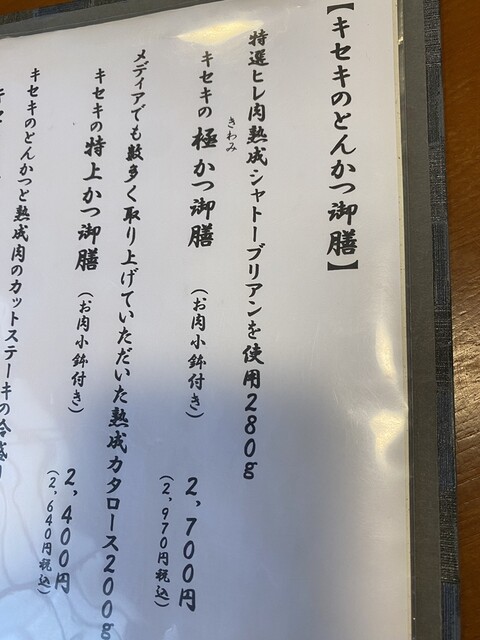 【キセキのとんかつ御膳】
特選ヒレ肉熟成シャトーブリアンを使用280g
きわみ
キセキの 極かつ御膳 (お肉小鉢付き) 2,700円
(2,970円税込)
メディアでも数多く取り上げていただいた熟成カタロース200g
キセキの特上かつ御膳 (お肉小鉢付き) 2,400円
(2,640円税込)
キセキのとんかつと熟成肉のカットステーキの合盛り